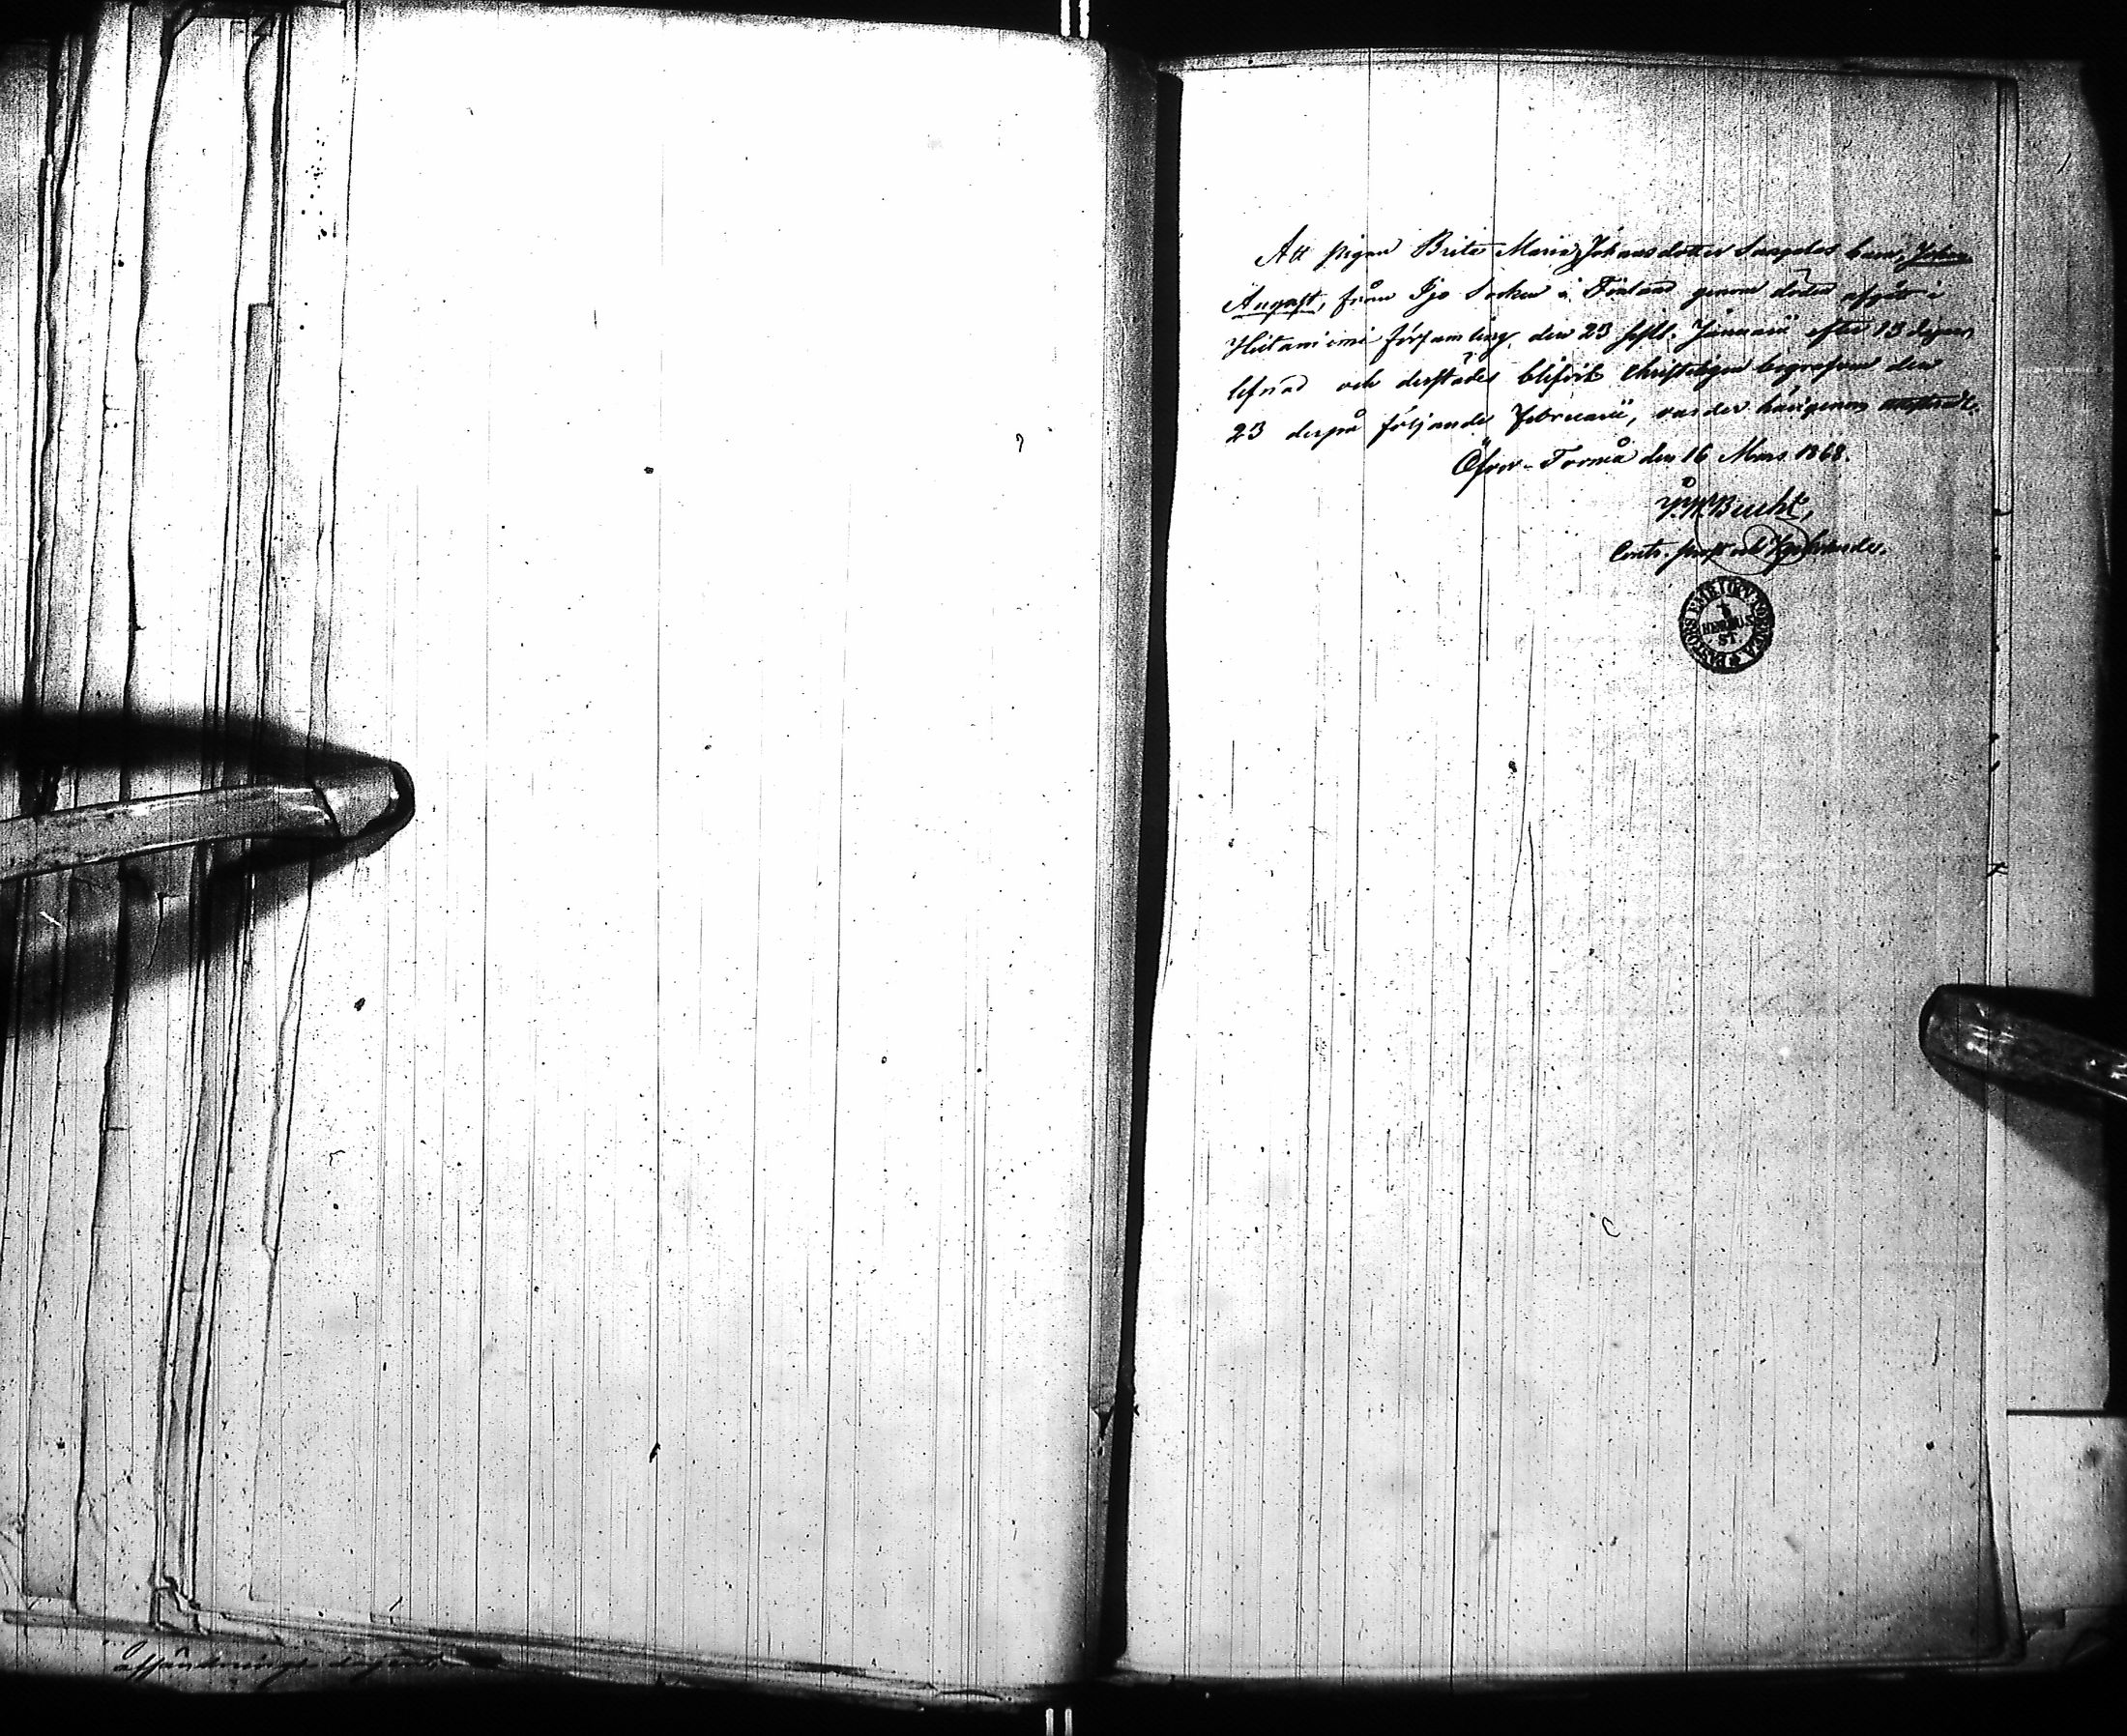 Att pigan Brita Maria Johansdotter Sangelas barn, Johan
August, från Ijo Socken i Finland genom döden afgått i
Hietaniemi församling den 23 sistl. Januarii efter 13 dagars
lefnad och derstädes blifvit christeligen begrafven den
23 derpå följande Februarii, varder härigenom attesteradt.
Öfver-Torneå den 16 Mars 1868.
Bucht,
Contr. prost och Kyrkoherde.
PASTORS EMB: I ÖFV: TORNEÅ
afsändnings dagen